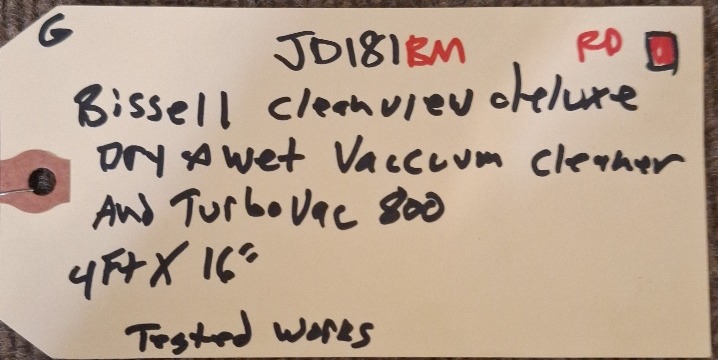 G JD181BM RD
Bissell cleanview deluxe
Dry & Wet Vaccuum cleaner
And TurboVac 800
4Ft X 16"
Tested Works